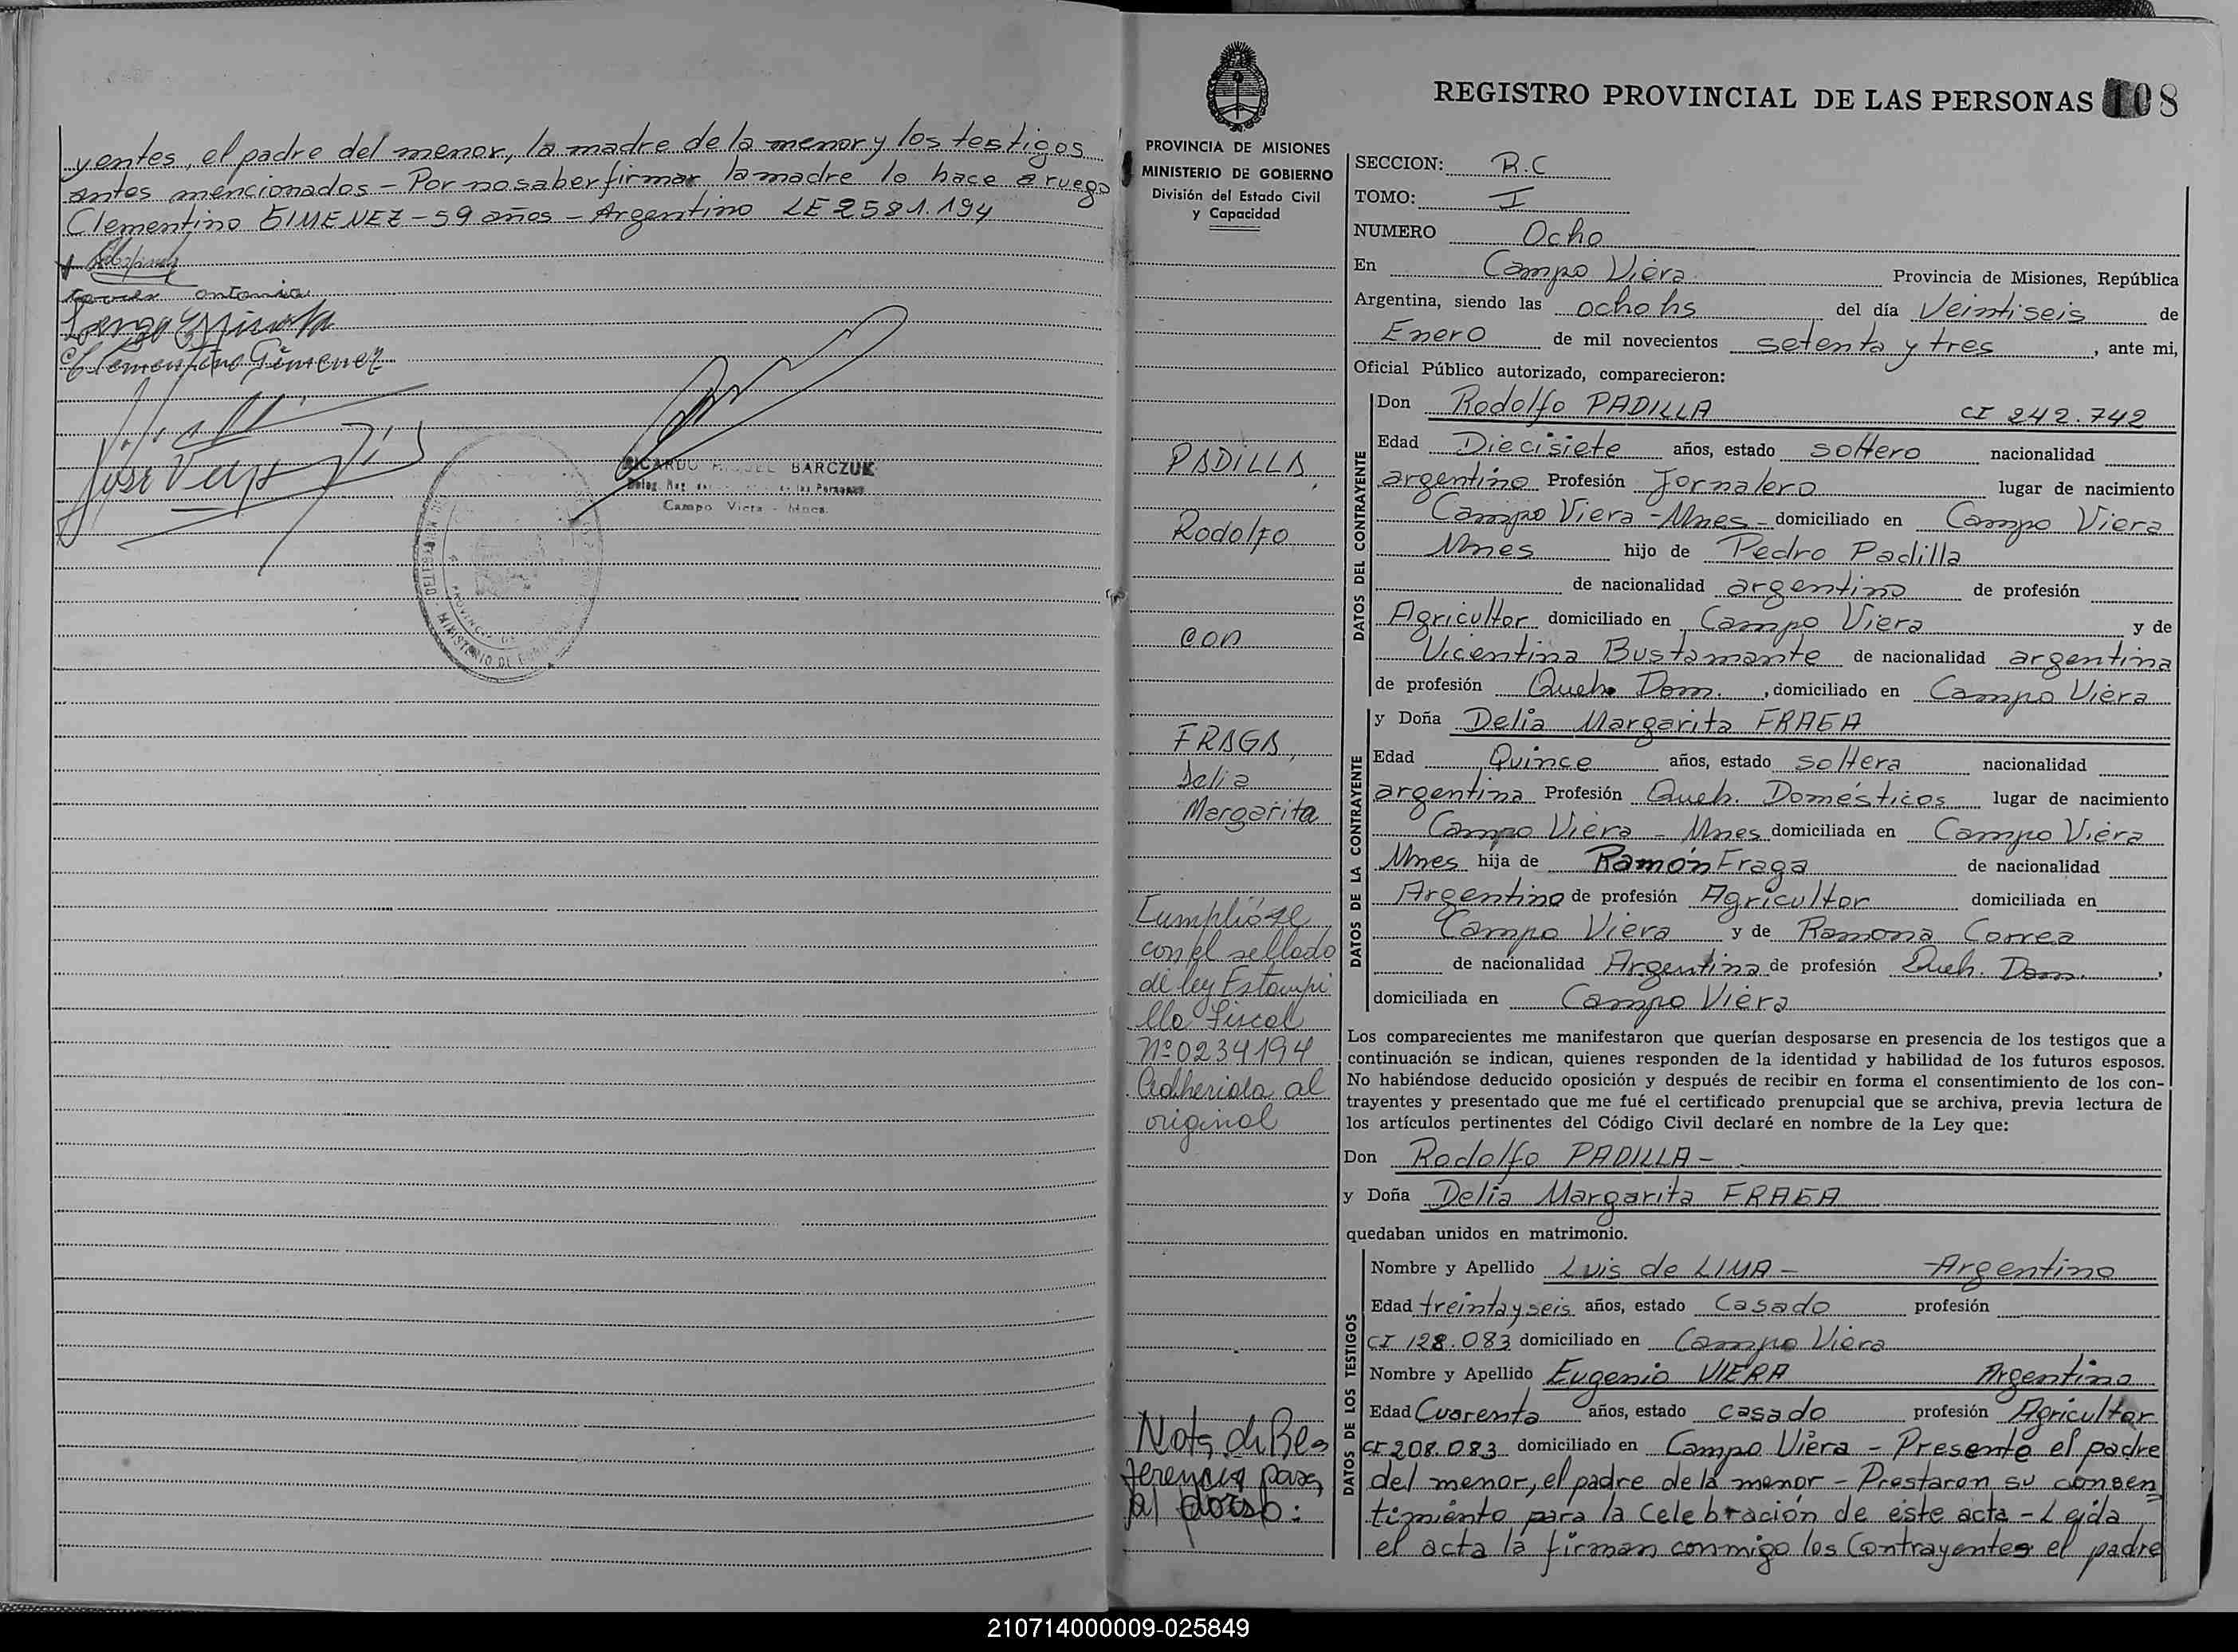 yentes, el padre del menor, la madre de la menor y los testigos
antes mencionados - Por no saber firmar la madre lo hace a ruego
Clementino GIMENEZ - 59 años - Argentino LE 2581.194
antonia
Clementino Gimenez
José
RICARDO BARCZUK
Deleg. Reg. de las Personas
Campo Viera - Mnes.
MINISTERIO DE
PROVINCIA DE
PROVINCIA DE MISIONES
MINISTERIO DE GOBIERNO
División del Estado Civil
y Capacidad
PADILLA,
Rodolfo
con
FRAGA,
Delia
Margarita
Cumplióse
con el sellado
de ley Estampi
lla fiscal
Nº 0234194
Adherida al
original
Nota de Re
ferencia pasa
al dorso:
REGISTRO PROVINCIAL DE LAS PERSONAS 108
SECCION: R.C
TOMO: I
NUMERO Ocho
En Campo Viera Provincia de Misiones, República
Argentina, siendo las ocho hs del día Veintiseis de
Enero de mil novecientos setenta y tres, ante mi,
Oficial Público autorizado, comparecieron:
DATOS DEL CONTRAYENTE
Don Rodolfo PADILLA CI 242.742
Edad Diecisiete años, estado soltero nacionalidad
argentino Profesión Jornalero lugar de nacimiento
Campo Viera - Mnes - domiciliado en Campo Viera
Mnes hijo de Pedro Padilla
de nacionalidad argentino de profesión
Agricultor domiciliado en Campo Viera y de
Vicentina Bustamante de nacionalidad argentina
de profesión Queh. Dom. , domiciliado en Campo Viera
DATOS DE LA CONTRAYENTE
y Doña Delia Margarita FRAGA
Edad Quince años, estado soltera nacionalidad
argentina Profesión Queh. Domésticos lugar de nacimiento
Campo Viera - Mnes domiciliada en Campo Viera
Mnes hija de Ramón Fraga de nacionalidad
Argentino de profesión Agricultor domiciliada en
Campo Viera y de Ramona Correa
de nacionalidad Argentina de profesión Queh. Dom. ,
domiciliada en Campo Viera
Los comparecientes me manifestaron que querían desposarse en presencia de los testigos que a
continuación se indican, quienes responden de la identidad y habilidad de los futuros esposos.
No habiéndose deducido oposición y después de recibir en forma el consentimiento de los con-
trayentes y presentado que me fué el certificado prenupcial que se archiva, previa lectura de
los artículos pertinentes del Código Civil declaré en nombre de la Ley que:
Don Rodolfo PADILLA -
y Doña Delia Margarita FRAGA
quedaban unidos en matrimonio.
DATOS DE LOS TESTIGOS
Nombre y Apellido Luis de LIMA - Argentino
Edad treinta y seis años, estado Casado profesión
CI 128.083 domiciliado en Campo Viera
Nombre y Apellido Eugenio VIERA Argentino
Edad Cuarenta años, estado casado profesión Agricultor
CI 208.083 domiciliado en Campo Viera - Presente el padre
del menor, el padre de la menor - Prestaron su consen
timiento para la Celebración de este acta - Leída
el acta la firman conmigo los Contrayentes el padre
210714000009-025849